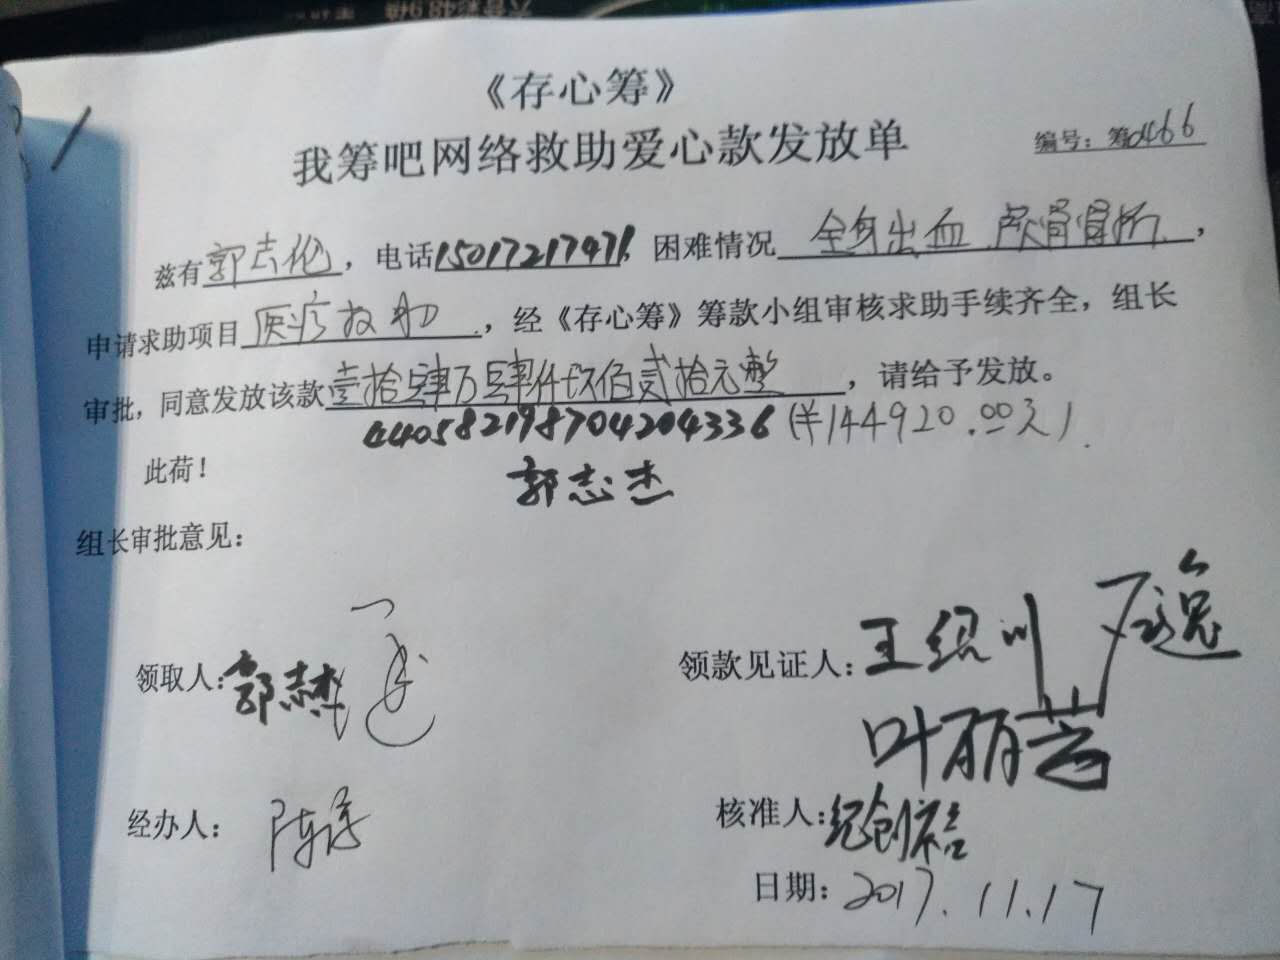 《存心筹》
我筹吧网络救助爱心款发放单
编号：筹0466
兹有郭吉伦，电话15017217471，困难情况全身出血 颅骨骨折，
申请求助项目医疗救助，经《存心筹》筹款小组审核求助手续齐全，组长
审批，同意发放该款壹拾肆万肆仟玖佰贰拾元整，请给予发放。
440582198704204336 (¥144920.00元)
此荷！
郭志杰
组长审批意见：
领取人：郭志杰
领款见证人：王绍川
叶丽芸
经办人：
核准人：纪创裕
日期：2017.11.17